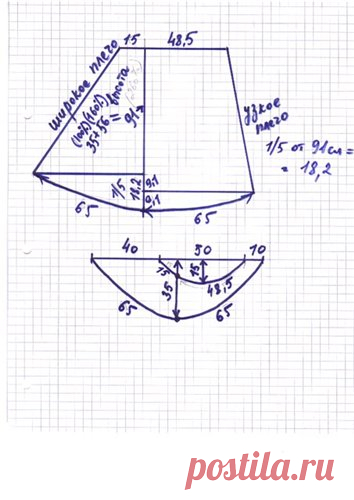 15 48,5
широкое плечо
(100%) (160%)
35+56
= высота
91
узкое
плечо
1/5 от 91см=
= 18,2
1/5
18,2
9,1
9,1
65 65
40 50 10
15 15
35
48,5
65 65
postila.ru